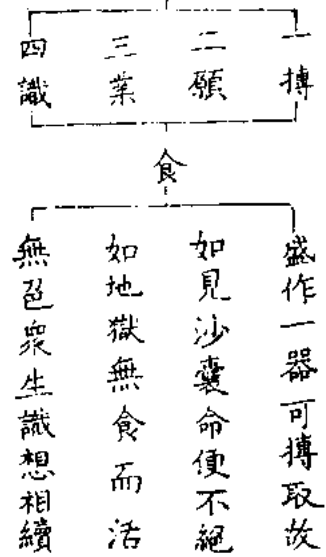 一搏
二願
三業
四識
食
盛作一器可搏取故
如見沙囊命便不絕
如地獄無食而活
無色衆生識想相續